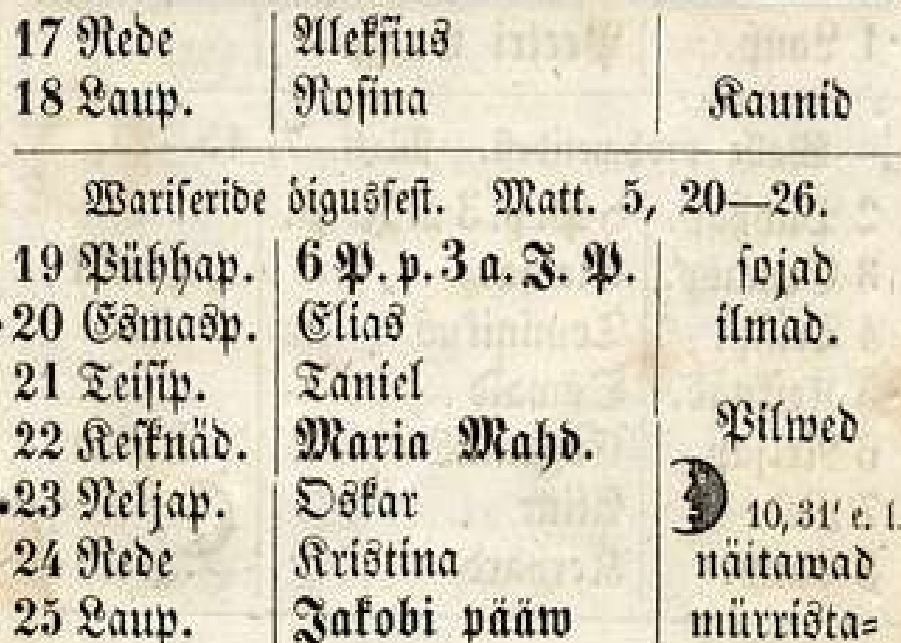 17 Rede Aleksius
18 Laup. Rosina Kaunid
Wariseride öigussest. Matt. 5, 20—26.
19 Pühhap. 6 P. p. 3 a. J. P. sojad
20 Esmasp. Elias ilmad.
21 Teisip. Taniel
22 Kesknäd. Maria Mahd. Pilwed
23 Neljap. Oskar 10,31' e. l.
24 Rede Kristina näitawad
25 Laup. Jakobi pääw mürrista=